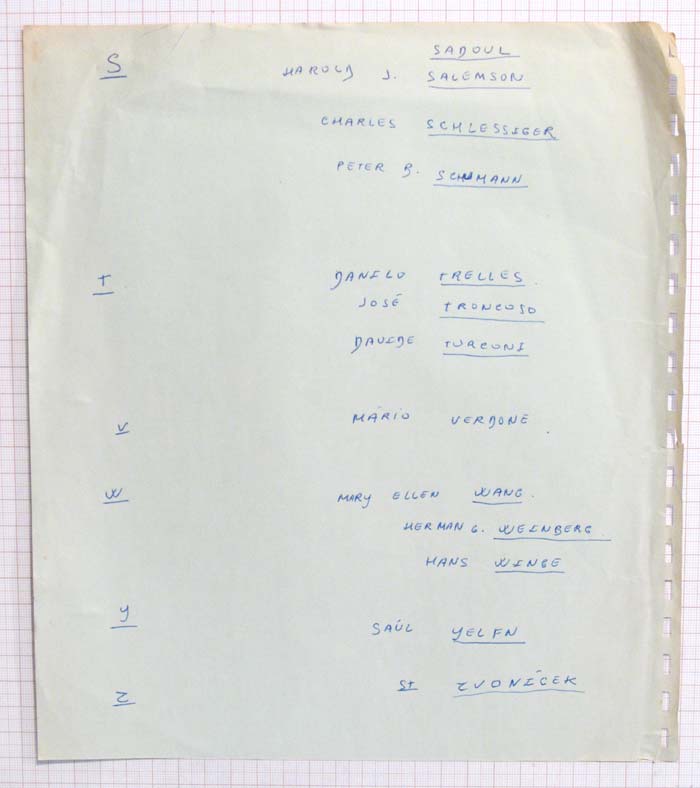 S
SADOUL
HAROLD J. SALEMSON
CHARLES SCHLESSIGER
PETER B. SCHUMANN
T
DANILO TRELLES.
JOSÉ TRONCOSO
DAVIDE TURCONI
V
MÁRIO VERDONE.
W
MARY ELLEN WANG.
HERMAN G. WEINBERG.
HANS WINGE
Y
SAÚL YELFN
Z
St ZVONÍCEK